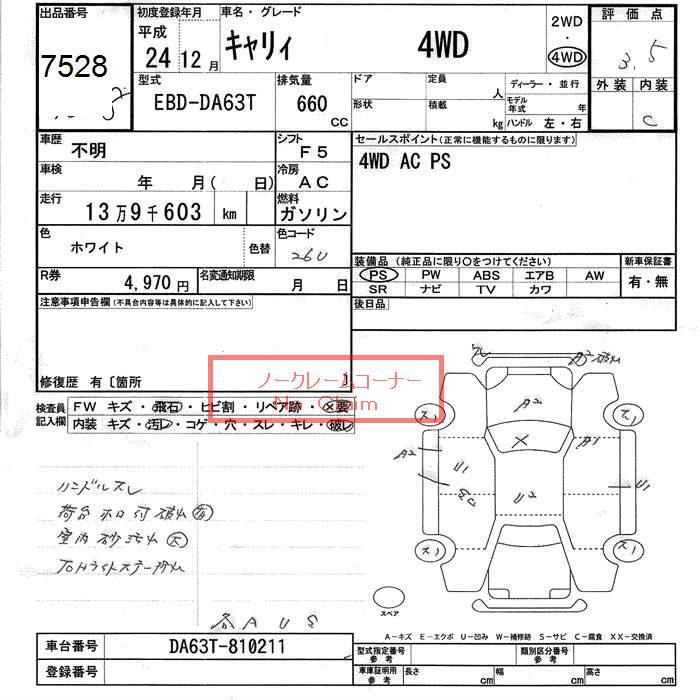 出品番号
7528
初度登録年月
平成
24 12月
車名・グレード
キャリィ 4WD
2WD
・
4WD
評価点
3.5
外装 内装
C
型式
EBD-DA63T
排気量
660
CC
ドア 定員 人
形状 積載 kg
ディーラー・並行
モデル年式 年
ハンドル 左・右
車歴
不明
シフト
F5
車検
年 月( 日)
冷房
AC
走行
13万9千603 km
燃料
ガソリン
色
ホワイト
色替
色コード
26U
R券
4,970円
名変通知期限
月 日
セールスポイント(正常に機能するものに限ります)
4WD AC PS
装備品 (純正品に限り○をつけてください)
PS PW ABS エアB AW
SR ナビ TV カワ
新車保証書
有・無
後日品
注意事項申告欄(不具合内容等は具体的に記入して下さい)
修復歴 有〔箇所 〕
ノークレームコーナー
No Claim
検査員記入欄
FW キズ・飛石・ヒビ割・リペア跡・X要
内装 キズ・汚レ・コゲ・穴・スレ・キレ・破レ
ハンドルスレ
A2
A2
X
A1
A2
U1
U2
U1
スペア
各AUS
A-キズ E-エクボ U-凹み W-補修跡 S-サビ C-腐食 XX-交換済
車台番号
DA63T-810211
登録番号
型式指定番号
参考
類別区分番号
参考
車庫証明用
参考
長さ cm
幅 cm
高さ cm